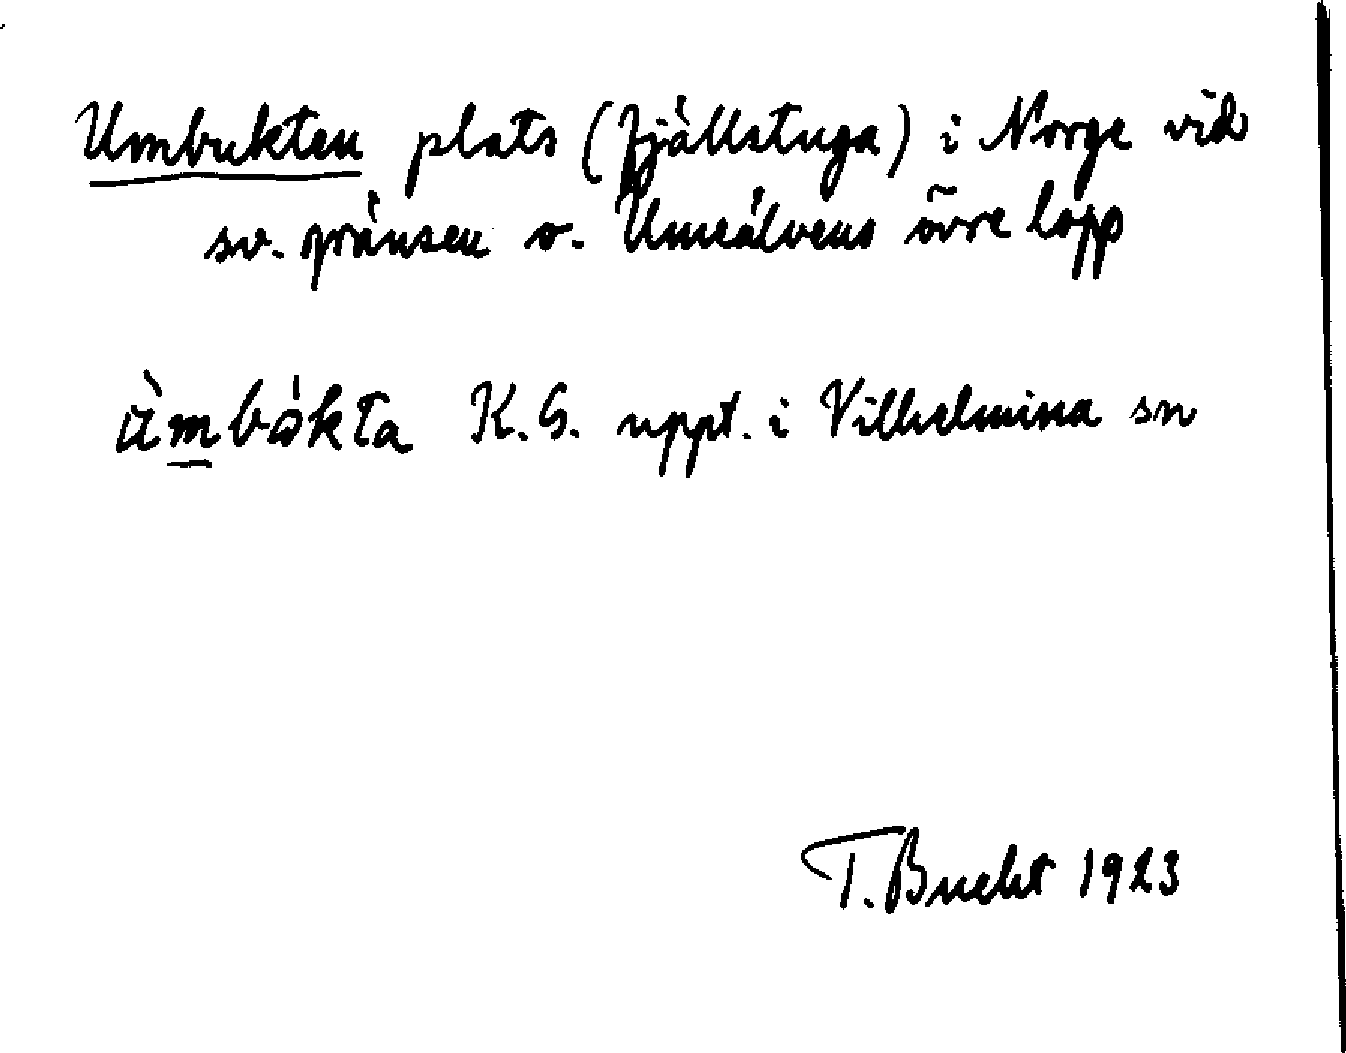 Umbukten plats (fjällstuga) i Norge vid
sv. gränsen o. Umeälvens övre lopp
ùmbókta K.G. uppt. i Vilhelmina sn
T. Bucht 1923